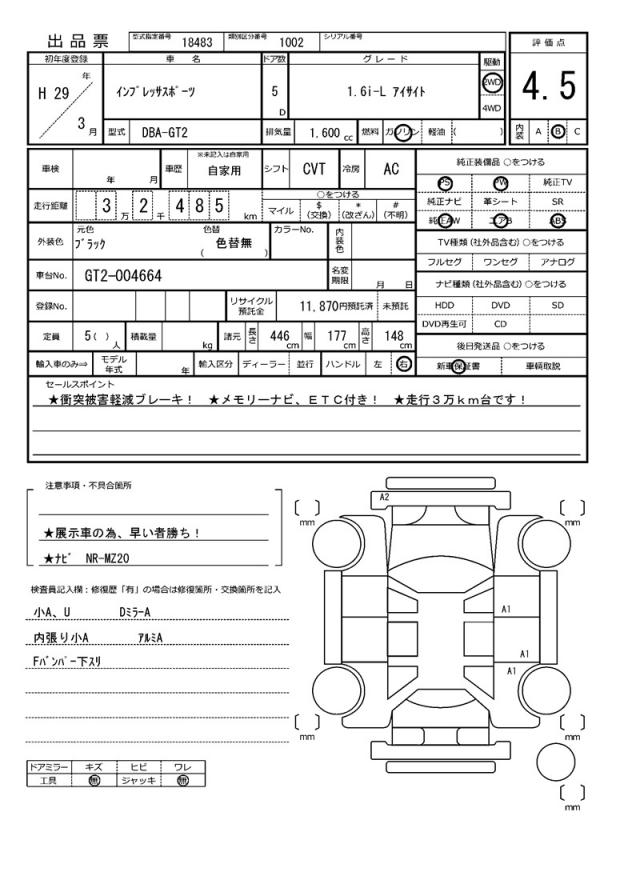 出品票 型式指定番号 18483 類別区分番号 1002 シリアル番号
初年度登録 車名 ドア数 グレード 駆動 評価点
H 29 年 3 月 ｲﾝﾌﾟﾚｯｻｽﾎﾟｰﾂ 5 D 1.6i-L アイサイト 2WD 4WD 4.5
型式 DBA-GT2 排気量 1,600 cc 燃料 ガソリン 軽油 ( ) 内装 A B C
車検 年 月 車歴 ※未記入は自家用 自家用 シフト CVT 冷房 AC 純正装備品 ○をつける
PS PW 純正TV
走行距離 3 万 2 千 4 8 5 km ○をつける 純正ナビ 革シート SR
マイル $ (交換) * (改ざん) # (不明) 純正AW エアB ABS
外装色 元色 ﾌﾞﾗｯｸ 色替 ( 色替無 ) カラーNo. 内装色 TV種類 (社外品含む) ○をつける
フルセグ ワンセグ アナログ
車台No. GT2-004664 名変期限 月 日 ナビ種類 (社外品含む) ○をつける
登録No. リサイクル預託金 11,870円預託済 未預託 HDD DVD SD
DVD再生可 CD
定員 5 ( ) 人 積載量 kg 諸元 長さ 446 cm 幅 177 cm 高さ 148 cm 後日発送品 ○をつける
輸入車のみ⇒ モデル年式 年 輸入区分 ディーラー 並行 ハンドル 左 右 新車保証書 車輌取説
セールスポイント
★衝突被害軽減ブレーキ！ ★メモリーナビ、ＥＴＣ付き！ ★走行３万ｋｍ台です！
注意事項・不具合箇所
★展示車の為、早い者勝ち！
★ﾅﾋﾞ NR-MZ20
検査員記入欄：修復歴「有」の場合は修復箇所・交換箇所を記入
小A、U DﾐﾗｰA
内張り小A ｱﾙﾐA
Fﾊﾞﾝﾊﾟｰ下ｽﾘ
ドアミラー キズ ヒビ ワレ
工具 無 ジャッキ 無
A2
mm mm
A1
A1
A1
mm mm
mm